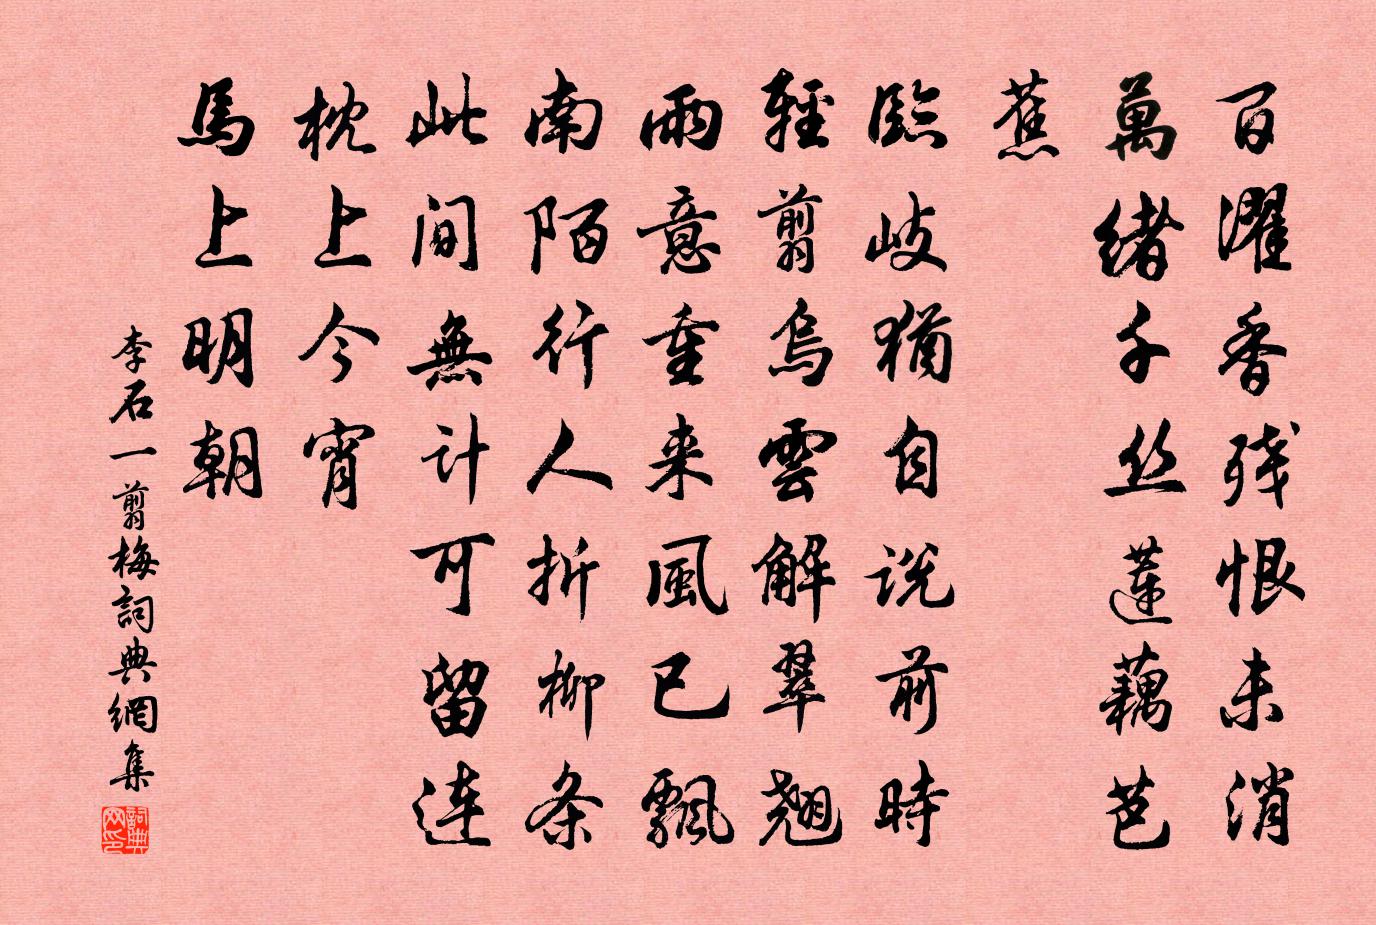 百濯香残恨未消
萬緒千丝蓮藕芭
蕉
臨岐猶自説前時
輕翦烏雲解翠翹
雨意重来風已飄
南陌行人折柳条
此間無计可留连
枕上今宵
馬上明朝
李石一翦梅詞典網集
詞典网印